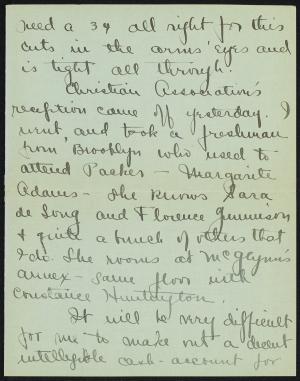 need a 34 all right for this
cuts in the arms' eyes and
is tight all through.
Christian Association's
reception came off yesterday. I
went, and took a freshman
from Brooklyn who used to
attend Packer - Margarite
Adams - She knows Sara
de Long and Florence Gunnison
& quite a bunch of others that
I do. She rooms at McGlynn's
annex - same floor with
Constance Huntington.
It will be very difficult
for me to make out a decent
intelligible cash-account for